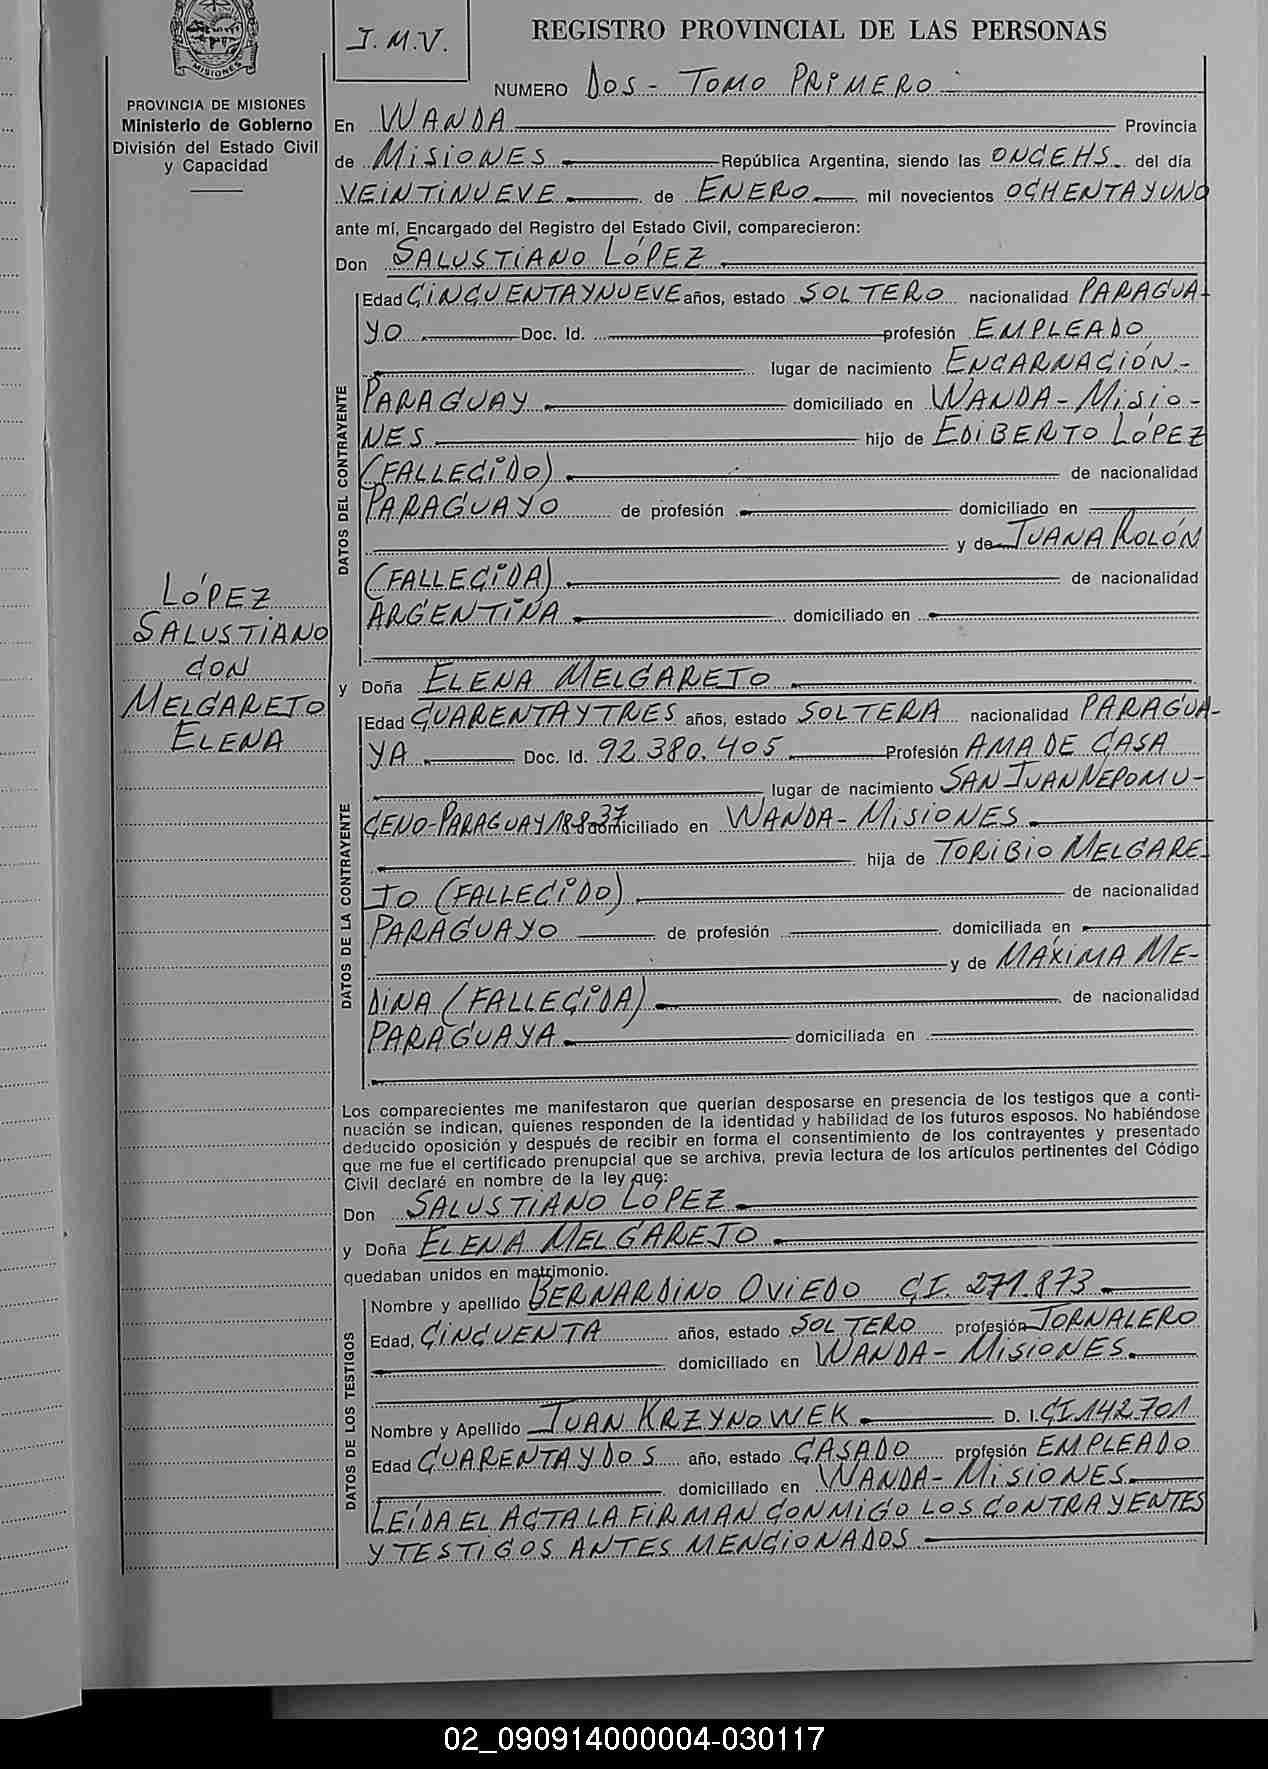 MISIONES
I.M.V.
REGISTRO PROVINCIAL DE LAS PERSONAS
NUMERO DOS - TOMO PRIMERO
PROVINCIA DE MISIONES
Ministerio de Gobierno
División del Estado Civil
y Capacidad
En WANDA Provincia
de MISIONES República Argentina, siendo las ONCE HS. del día
VEINTINUEVE de ENERO mil novecientos OCHENTA Y UNO
ante mí, Encargado del Registro del Estado Civil, comparecieron:
Don SALUSTIANO LÓPEZ
DATOS DEL CONTRAYENTE
Edad CINCUENTA Y NUEVE años, estado SOLTERO nacionalidad PARAGUA-
YO Doc. Id. profesión EMPLEADO
lugar de nacimiento ENCARNACIÓN-
PARAGUAY domiciliado en WANDA - MISIO-
NES hijo de EDIBERTO LÓPEZ
(FALLECIDO) de nacionalidad
PARAGUAYO de profesión domiciliado en
y de JUANA ROLÓN
(FALLECIDA) de nacionalidad
ARGENTINA domiciliado en
LÓPEZ
SALUSTIANO
CON
MELGAREJO
ELENA
y Doña ELENA MELGAREJO
DATOS DE LA CONTRAYENTE
Edad CUARENTA Y TRES años, estado SOLTERA nacionalidad PARAGUA-
YA Doc. Id. 92.380.405 Profesión AMA DE CASA
lugar de nacimiento SAN JUAN NEPOMU-
CENO-PARAGUAY 18-8-37 domiciliado en WANDA - MISIONES
hija de TORIBIO MELGARE-
JO (FALLECIDO) de nacionalidad
PARAGUAYO de profesión domiciliada en
y de MÁXIMA ME-
DINA (FALLECIDA) de nacionalidad
PARAGUAYA domiciliada en
Los comparecientes me manifestaron que querían desposarse en presencia de los testigos que a conti-
nuación se indican, quienes responden de la identidad y habilidad de los futuros esposos. No habiéndose
deducido oposición y después de recibir en forma el consentimiento de los contrayentes y presentado
que me fue el certificado prenupcial que se archiva, previa lectura de los artículos pertinentes del Código
Civil declaré en nombre de la ley que:
Don SALUSTIANO LÓPEZ
y Doña ELENA MELGAREJO
quedaban unidos en matrimonio.
DATOS DE LOS TESTIGOS
Nombre y apellido BERNARDINO OVIEDO CI. 271.873
Edad, CINCUENTA años, estado SOLTERO profesión JORNALERO
domiciliado en WANDA - MISIONES.
Nombre y Apellido JUAN KRZYNOWEK D. I. CI.142.701
Edad CUARENTA Y DOS año, estado CASADO profesión EMPLEADO
domiciliado en WANDA - MISIONES
LEÍDA EL ACTA LA FIRMAN CONMIGO LOS CONTRAYENTES
Y TESTIGOS ANTES MENCIONADOS.
02_090914000004-030117